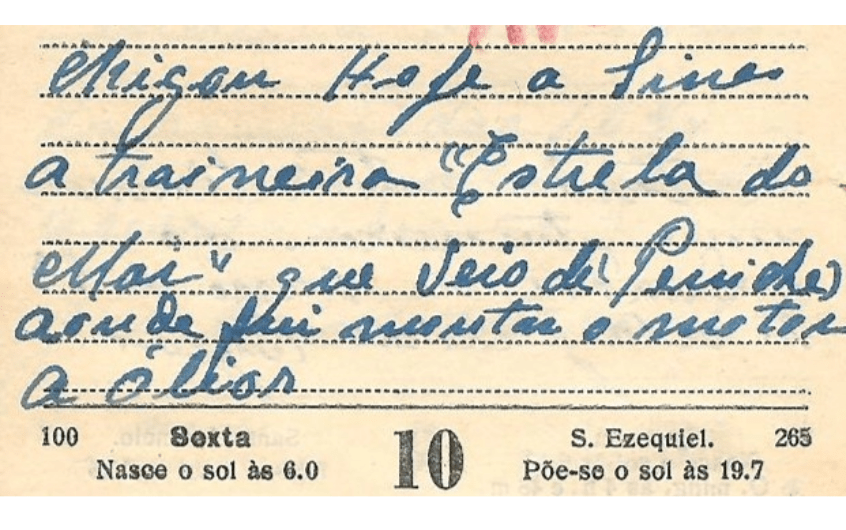 chigou Hoje a Sines
a traineira "Estrela do
Mar" que veio de (Peniche)
aonde fui montar o motor
a ólior
100 Sexta 10 S. Ezequiel. 265
Nasce o sol às 6.0 Põe-se o sol às 19.7